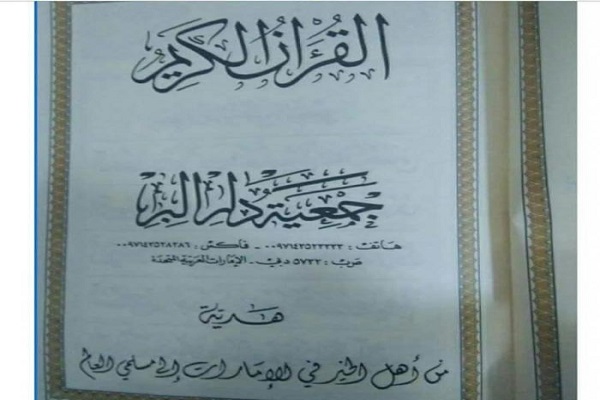 القرآن الكريم
جمعية دار البر
هاتف : ٠٠٩٧١٤٢٥٢٣٣٣٣ - فاكس : ٠٠٩٧١٤٢٥٢٨٢٨٦
ص.ب : ٥٧٣٢ دبي - الإمارات العربية المتحدة
هدية
من أهل الخير في الإمارات إلى مسلمي العالم